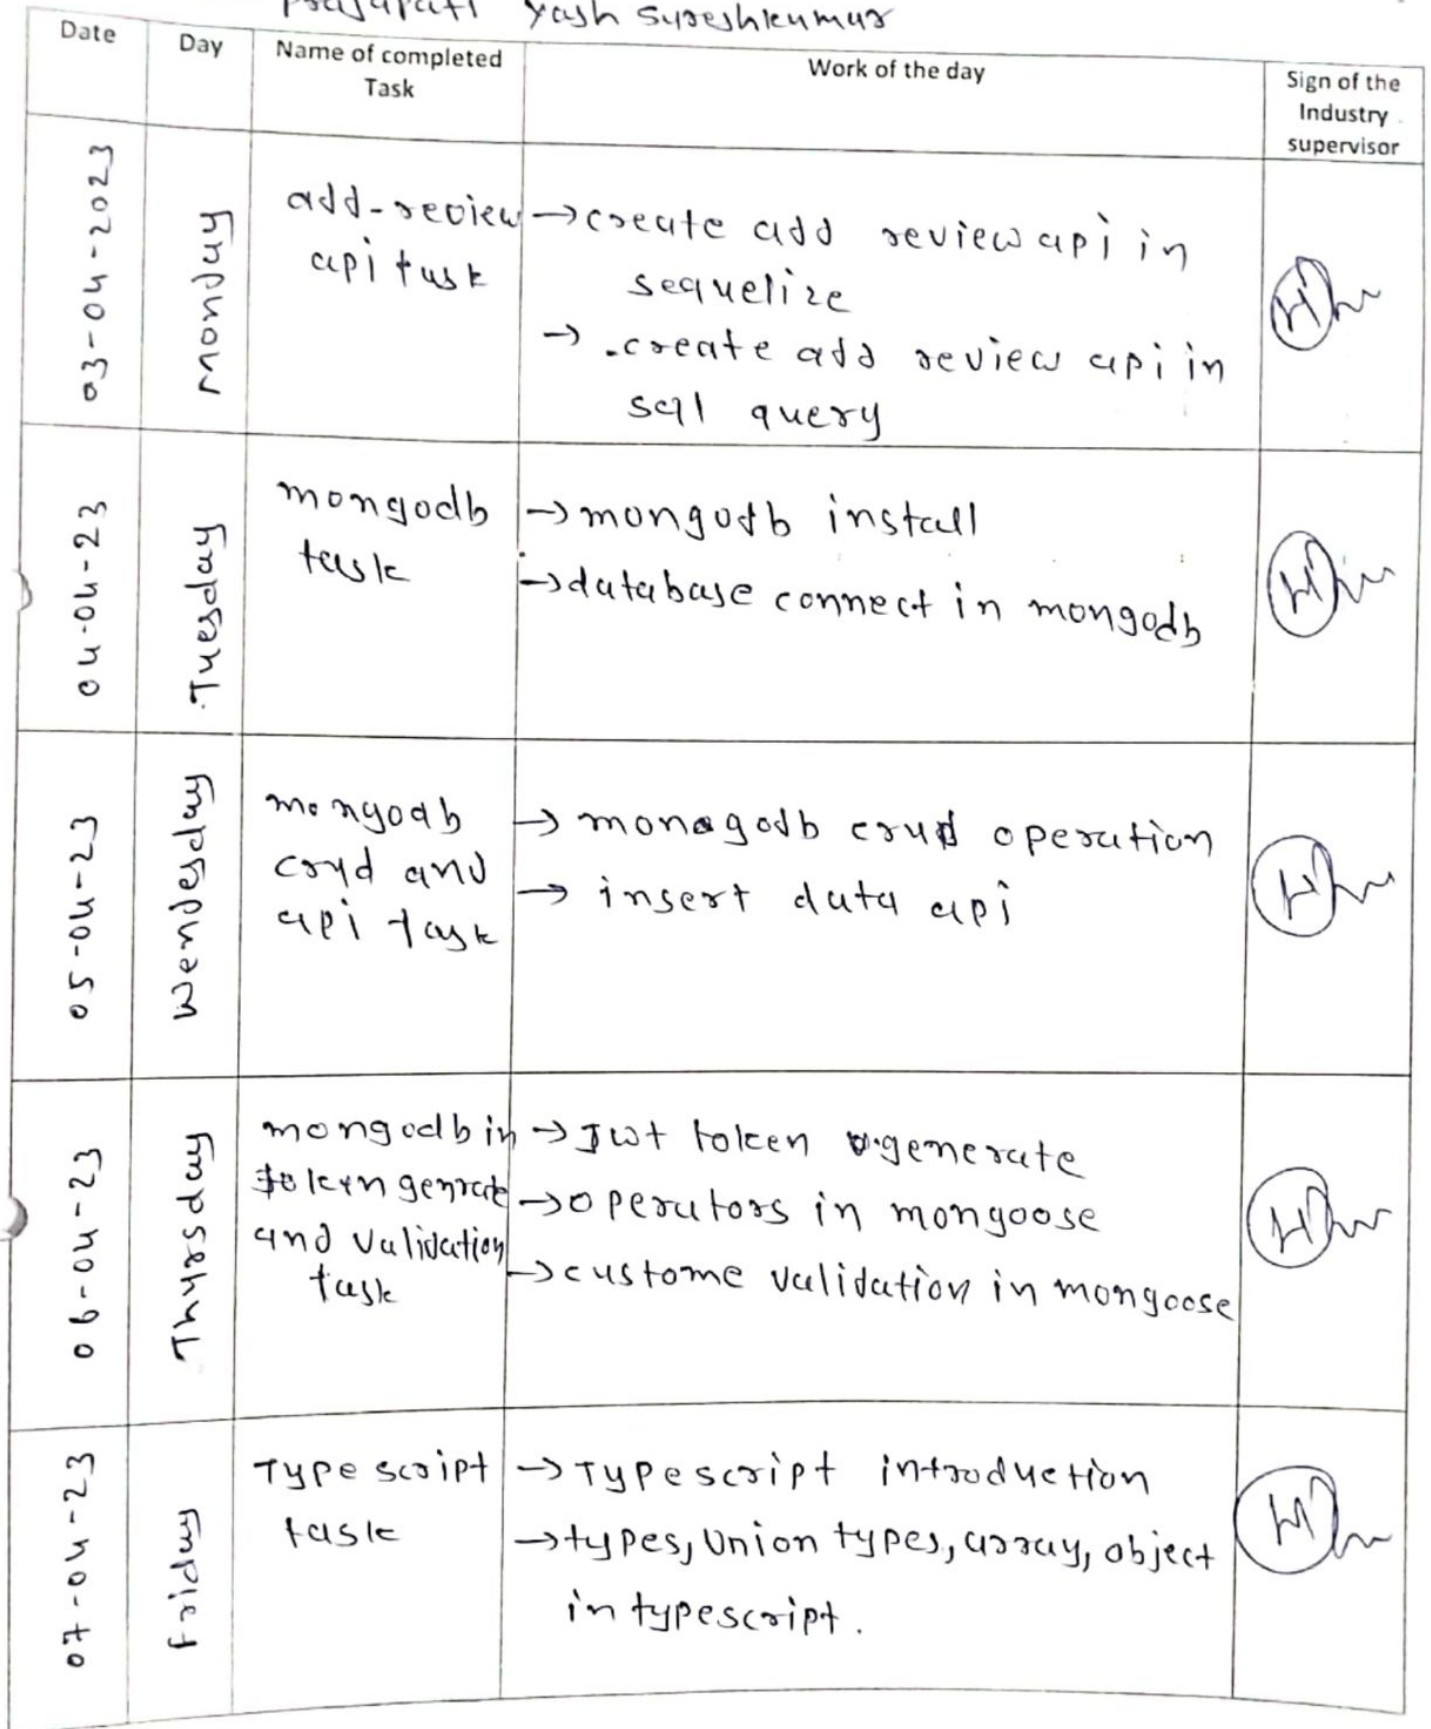 Prajapati Yash Sureshkumar
Date
Day
Name of completed
Task
Work of the day
Sign of the
Industry
supervisor
03-04-2023
monday
add-review
api task
→ create add review api in
sequelize
→ create add review api in
sql query
04-04-23
Tuesday
mongodb
task
→ mongodb install
→ database connect in mongodb
05-04-23
Wendesday
mongodb
crud and
api task
→ monagodb crud operation
→ insert data api
06-04-23
Thursday
mongodb in
token genrate
and validation
task
→ Jwt token generate
→ operators in mongoose
→ custome validation in mongoose
07-04-23
friday
Type script
task
→ Typescript introduction
→ types, Union types, array, object
in typescript.